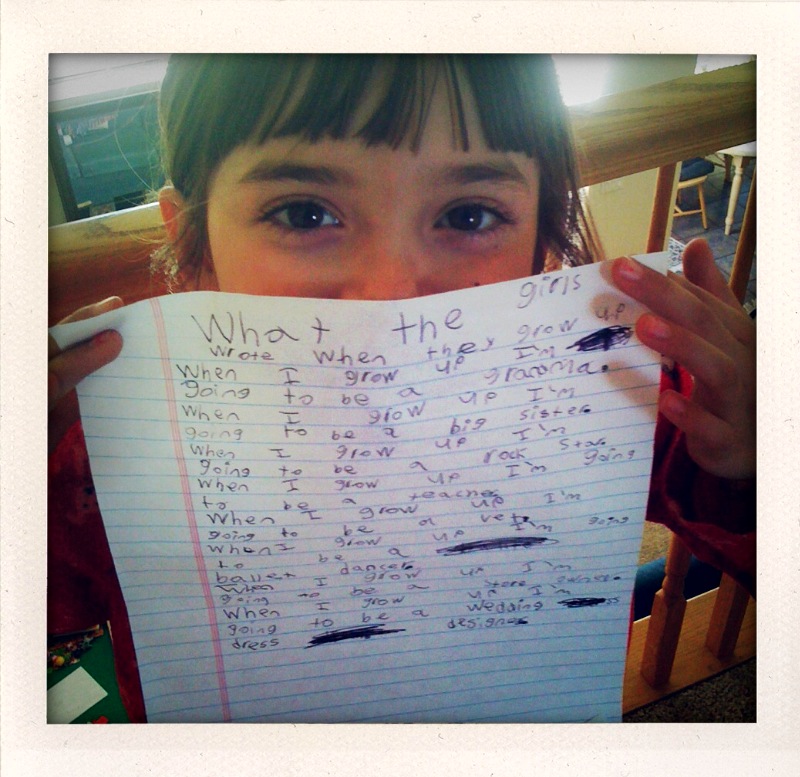 What the girls
Wrote When they grow up
When I grow up I'm
going to be a grandma.
When I grow up I'm
going to be a big sister.
When I grow up I'm
going to be a rock star.
When I grow up I'm going
to be a teacher.
When I grow up I'm
going to be a vet.
When I grow up I'm going
to be a
ballet dancer.
When I grow up I'm
going to be a store owner.
When I grow up I'm
going to be a wedding
dress designer